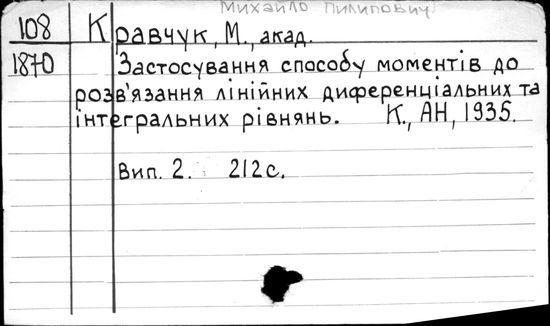 Михайло Пилипович
108 Кравчук, М., акад.
1870 Застосування способу моментів до
розв'язання лінійних диференціальних та
інтегральних рівнянь. К., АН, 1935.
Вип. 2. 212 с.